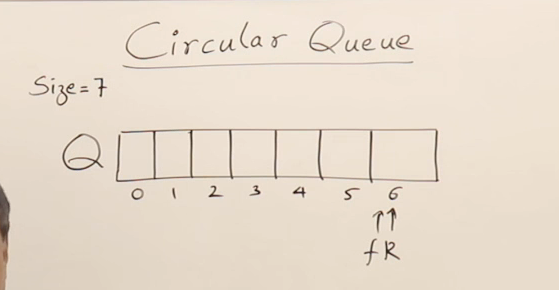 Circular Queue
Size=7
Q
0 1 2 3 4 5 6
f R